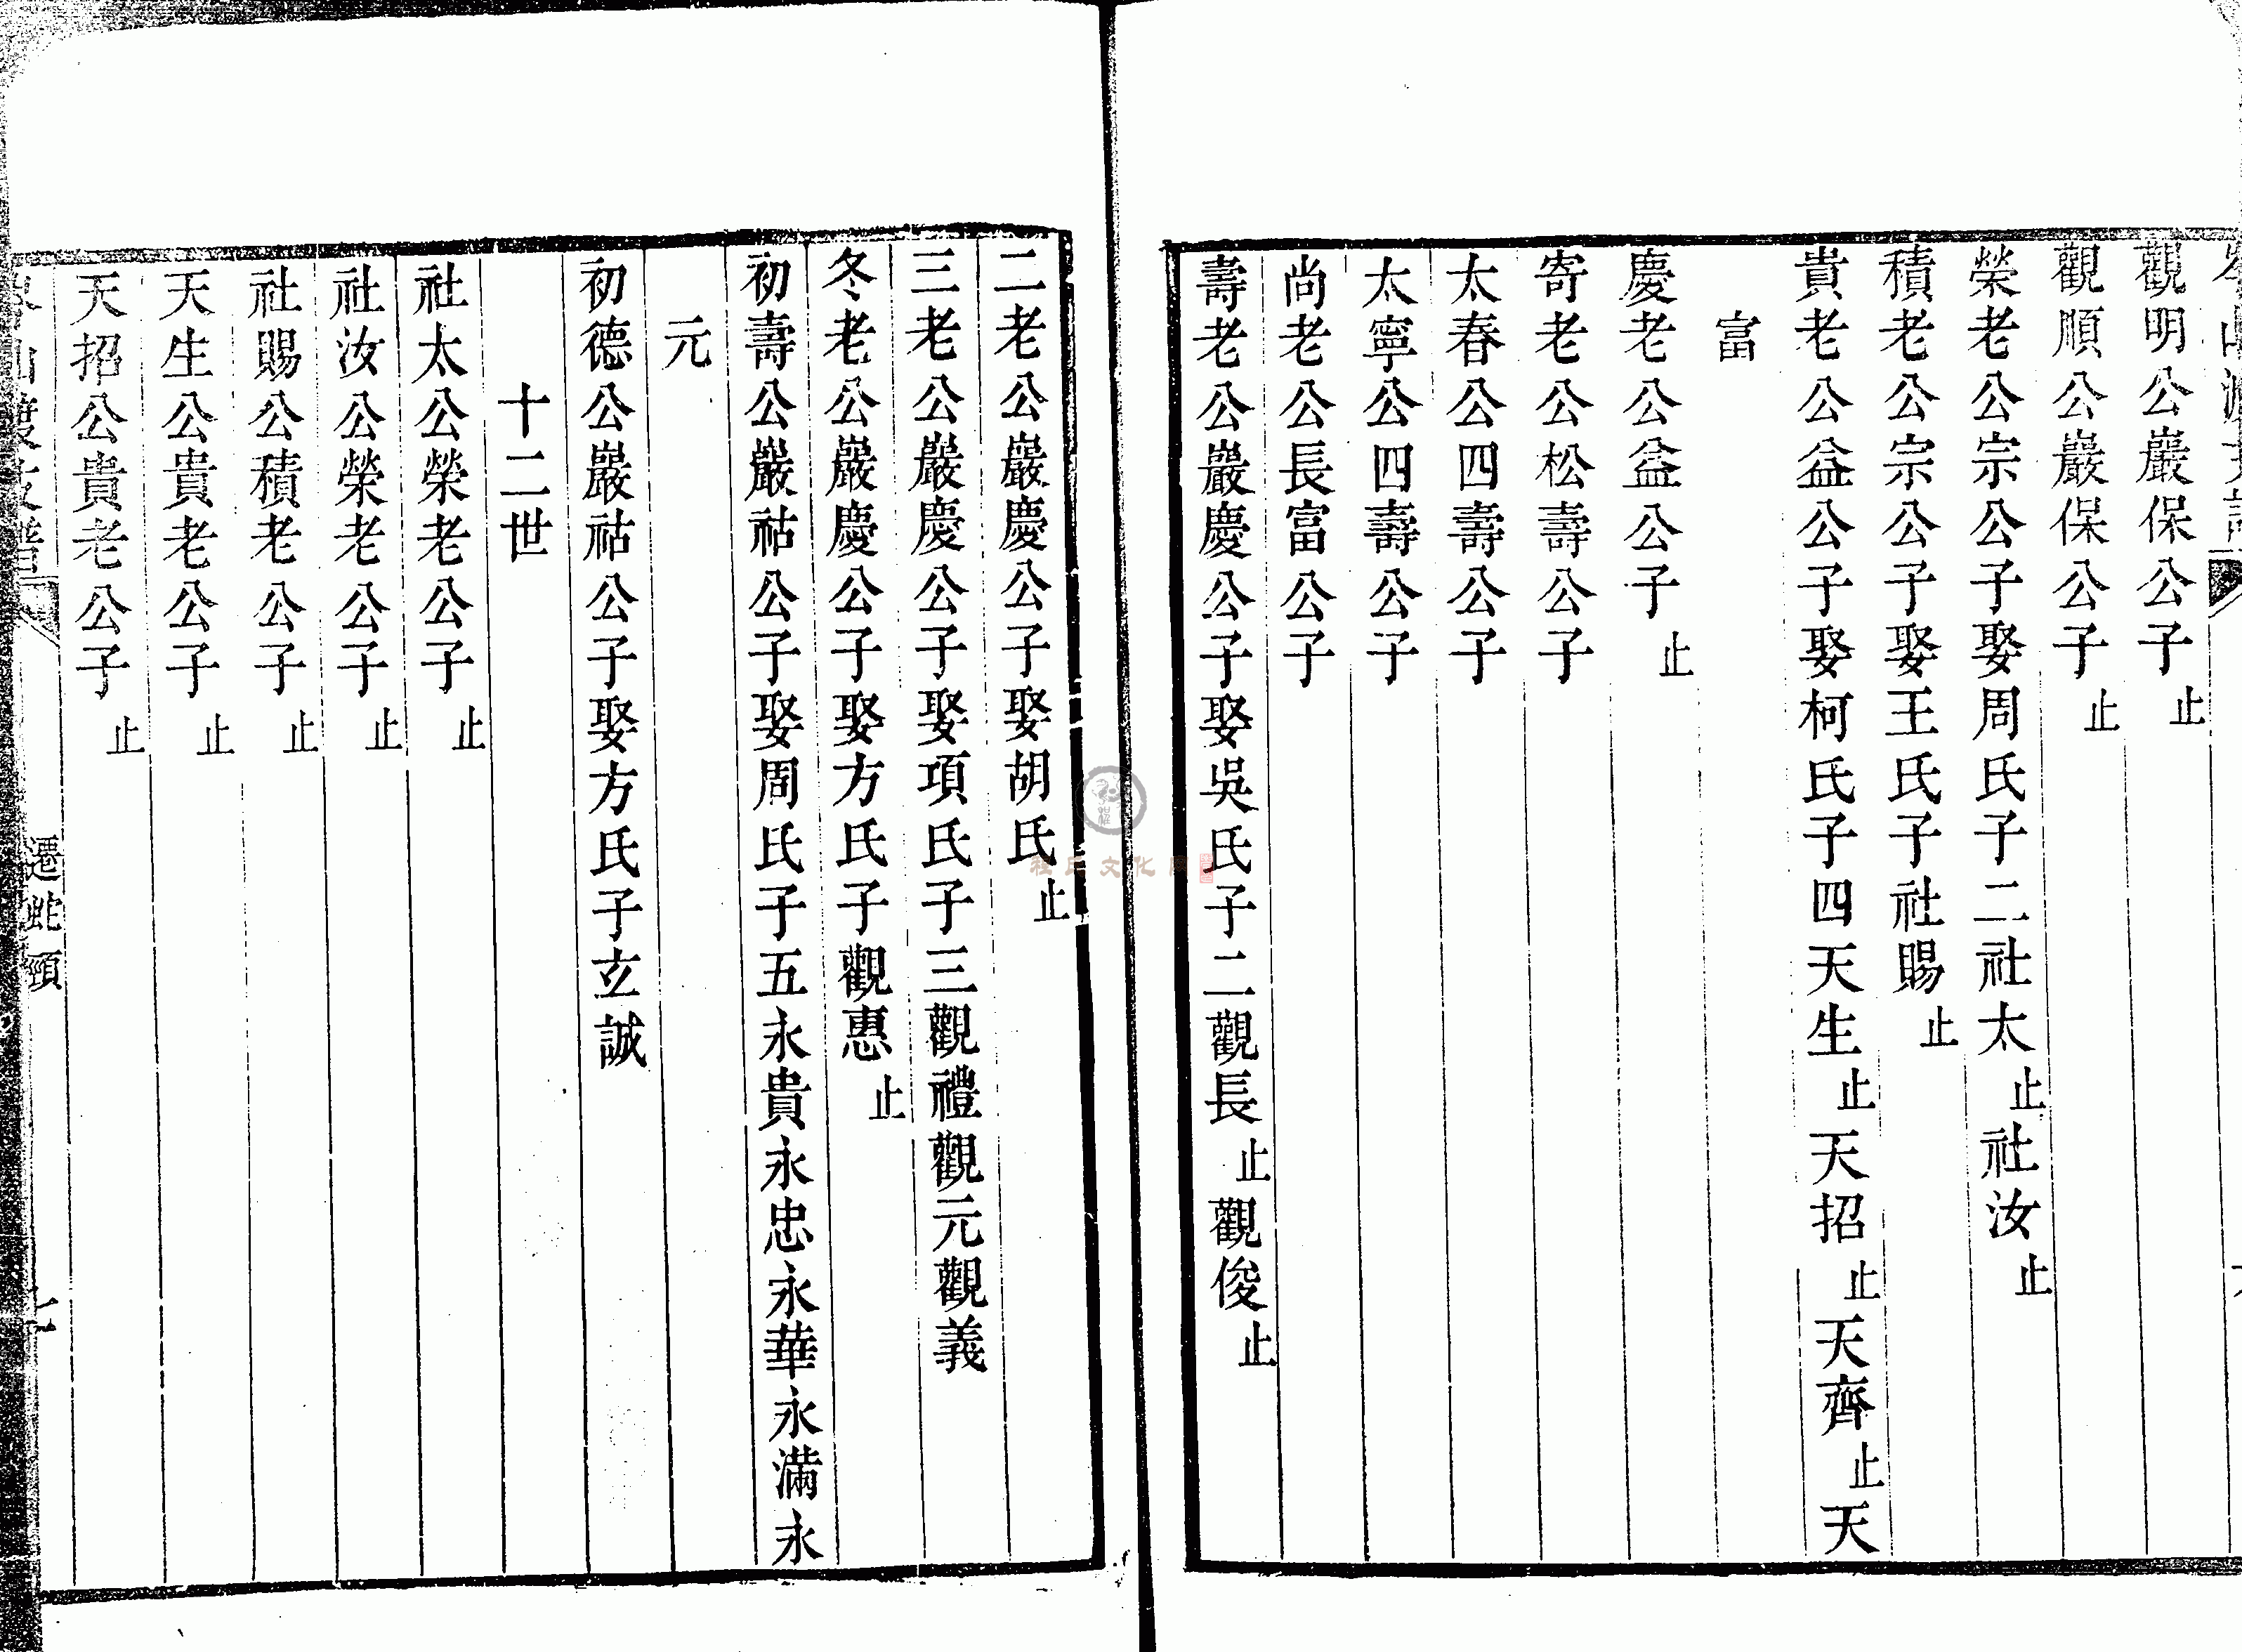 觀明公巖保公子止
觀順公巖保公子止
榮老公宗公子娶周氏子二社太止社汝止
積老公宗公子娶王氏子社賜止
貴老公益公子娶柯氏子四天生止天招止天齊止天
富
慶老公益公子止
寄老公松壽公子
太春公四壽公子
太寧公四壽公子
尚老公長富公子
壽老公巖慶公子娶吳氏子二觀長止觀俊止
二老公巖慶公子娶胡氏止
三老公巖慶公子娶項氏子三觀禮觀元觀義
冬老公巖慶公子娶方氏子觀惠止
初壽公巖祜公子娶周氏子五永貴永忠永華永滿永
元
初德公巖祜公子娶方氏子玄誠
十二世
社太公榮老公子止
社汝公榮老公子止
社賜公積老公子止
天生公貴老公子止
天招公貴老公子止
遷蛇頭
七
程氏文化網